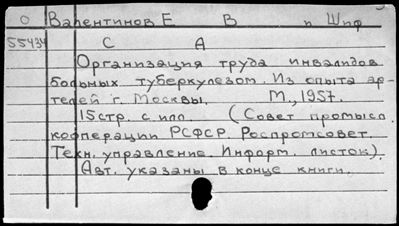 О Валентинов Е В п Шиф
55434 С А
Организация труда инвалидов
больных туберкулезом. Из опыта ар-
телей г. Москвы, М., 1957.
15 стр. с илл. (Совет промысл.
кооперации РСФСР. Роспромсовет.
Техн. управление. Информ. листок).
Авт. указаны в конце книги.